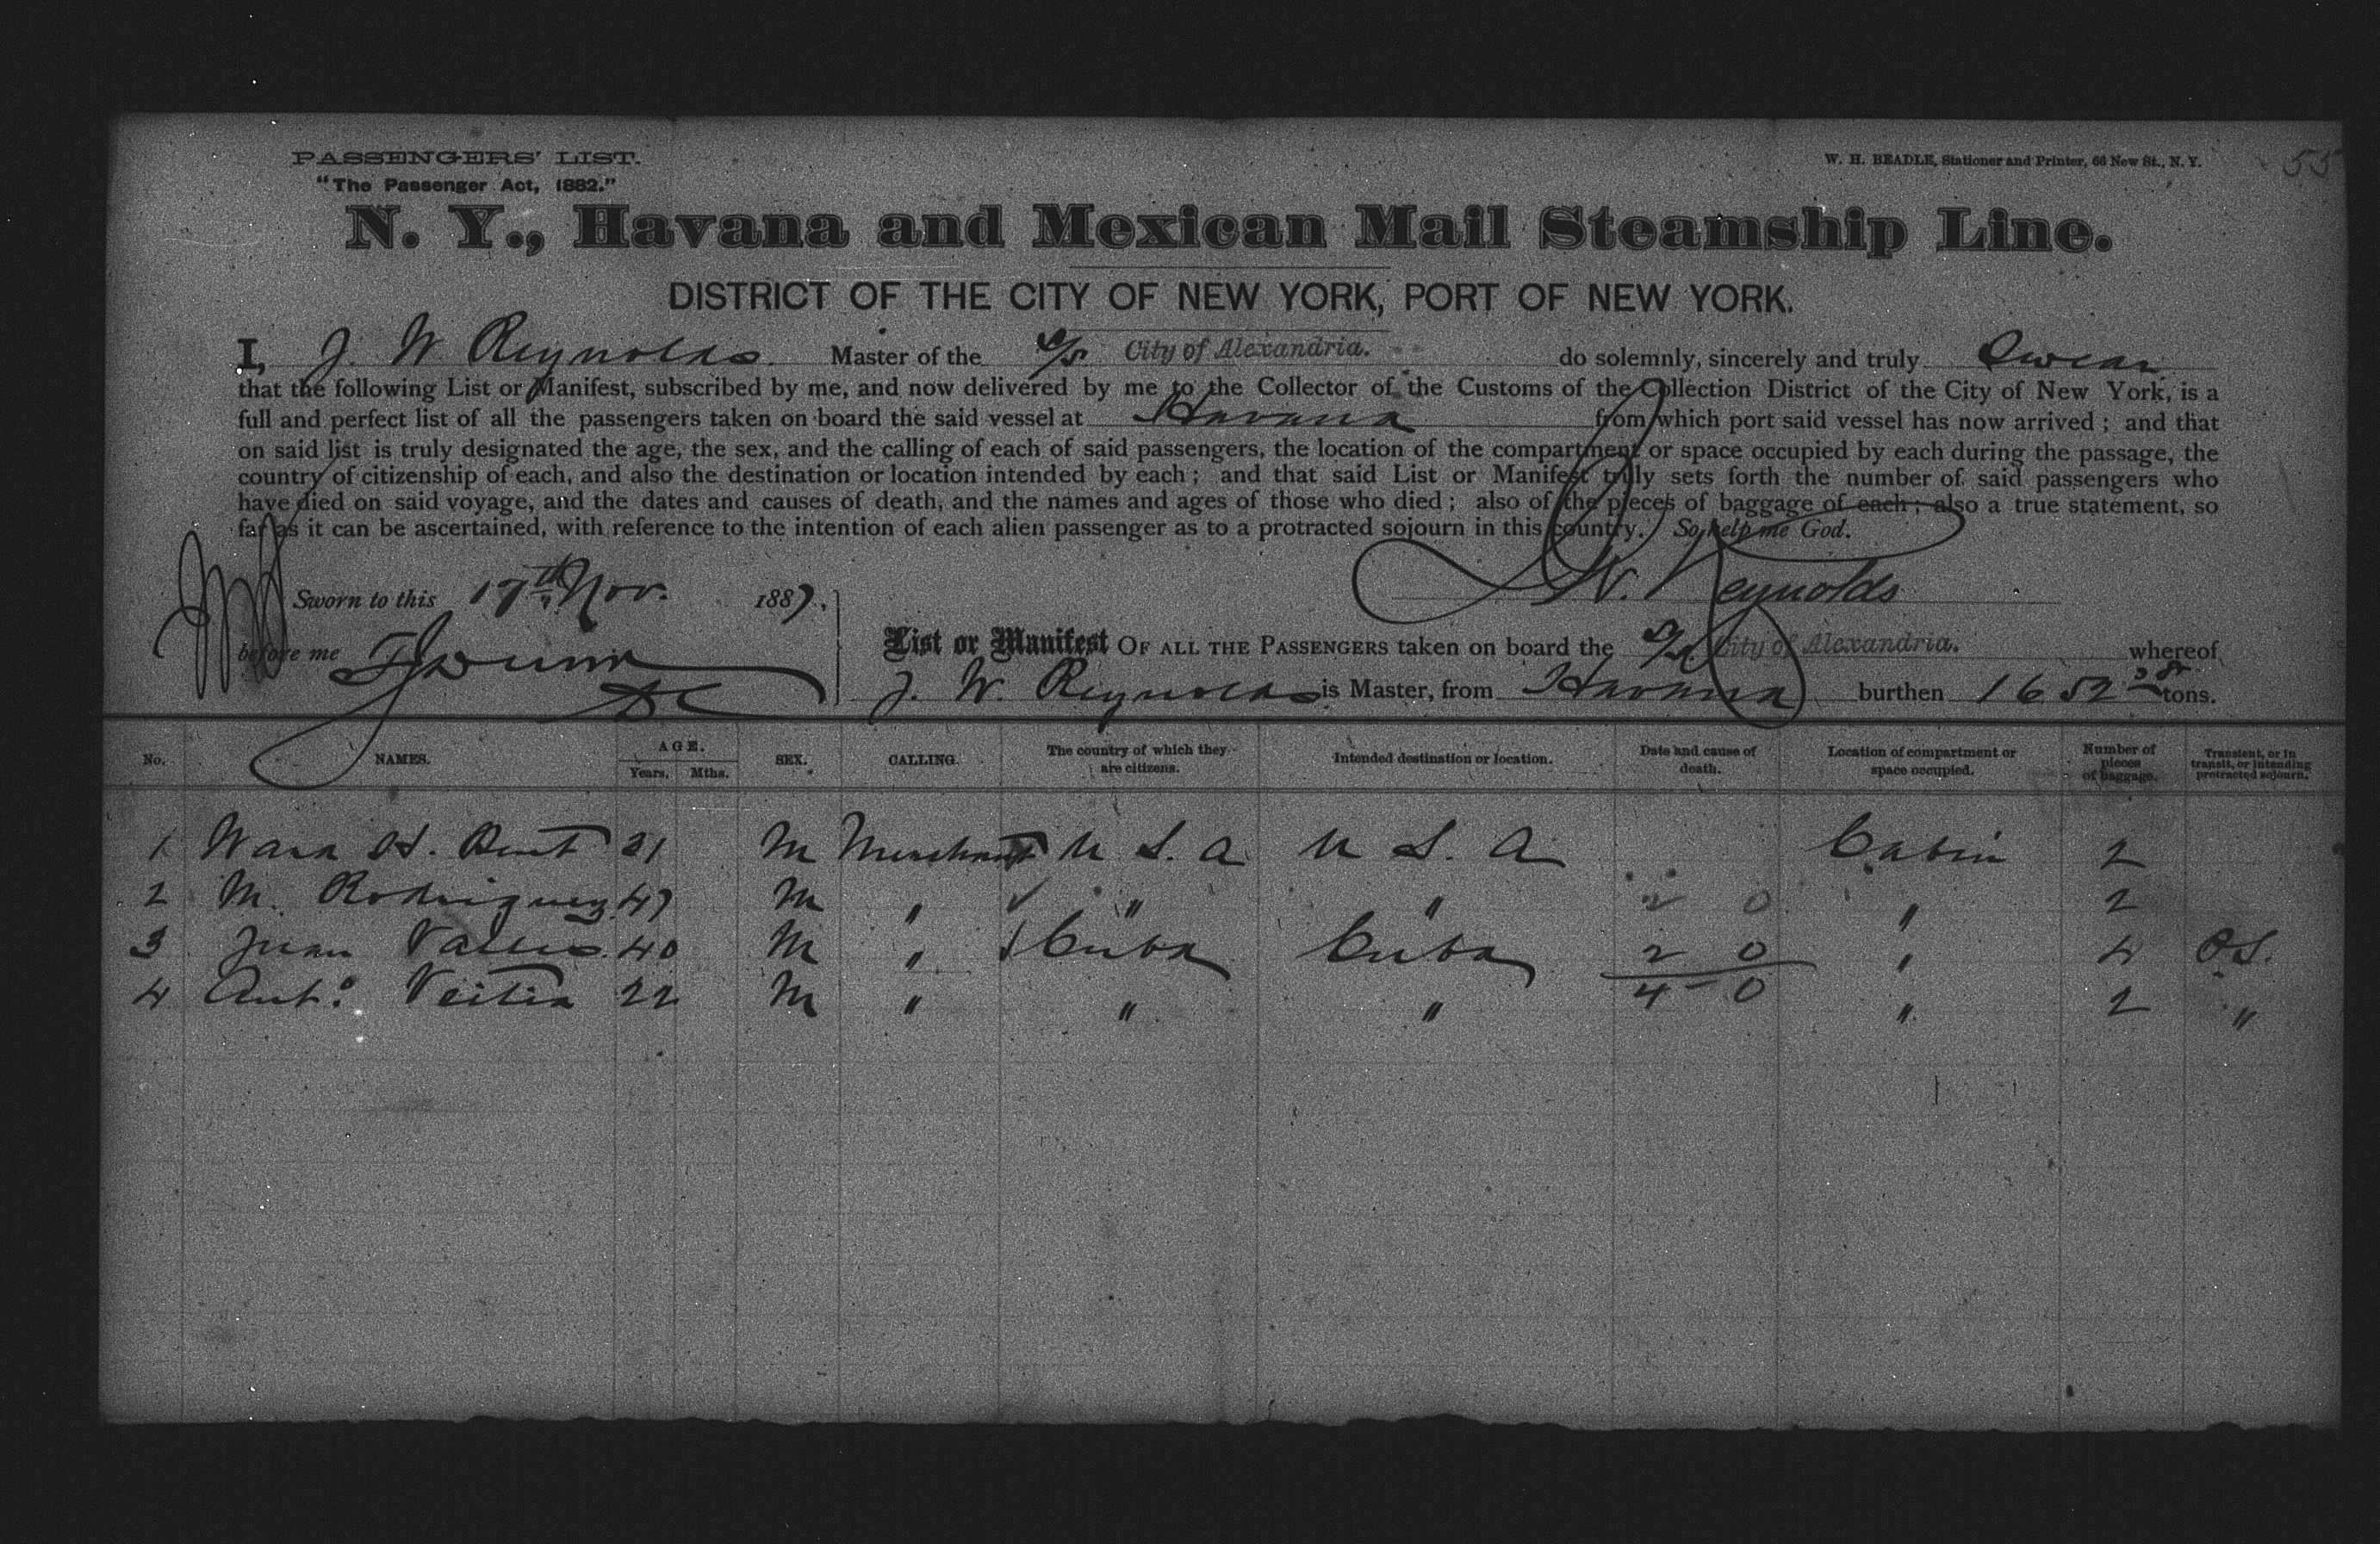 PASSENGERS' LIST.
"The Passenger Act, 1882."
W. H. BEADLE, Stationer and Printer, 66 New St., N. Y.
55
N. Y., Havana and Mexican Mail Steamship Line.
DISTRICT OF THE CITY OF NEW YORK, PORT OF NEW YORK.
I, J. W. Reynolds Master of the S/S City of Alexandria. do solemnly, sincerely and truly Swear
that the following List or Manifest, subscribed by me, and now delivered by me to the Collector of the Customs of the Collection District of the City of New York, is a
full and perfect list of all the passengers taken on board the said vessel at Havana from which port said vessel has now arrived; and that
on said list is truly designated the age, the sex, and the calling of each of said passengers, the location of the compartment or space occupied by each during the passage, the
country of citizenship of each, and also the destination or location intended by each; and that said List or Manifest truly sets forth the number of said passengers who
have died on said voyage, and the dates and causes of death, and the names and ages of those who died; also of the pieces of baggage of each; also a true statement, so
far as it can be ascertained, with reference to the intention of each alien passenger as to a protracted sojourn in this country. So help me God.
Sworn to this 17th Nov. 1887.
J W. Reynolds
before me
List or Manifest OF ALL THE PASSENGERS taken on board the S/S City of Alexandria. whereof
J. W. Reynolds is Master, from Havana burthen 1652 tons.
No. NAMES. AGE. Years. Mths. SEX. CALLING. The country of which they are citizens. Intended destination or location. Date and cause of death. Location of compartment or space occupied. Number of pieces of baggage. Transient, or in transit, or intending protracted sojourn.
1 H. 31 M Merchant U S. A U S. A Cabin 2
2 M. Rodriguez 47 M " " " 2 0 " 2
3 Juan 40 M " Cuba Cuba 2 0 " 4
4 Anto. Veitia 22 M " " " 4 - 0 " 2 "